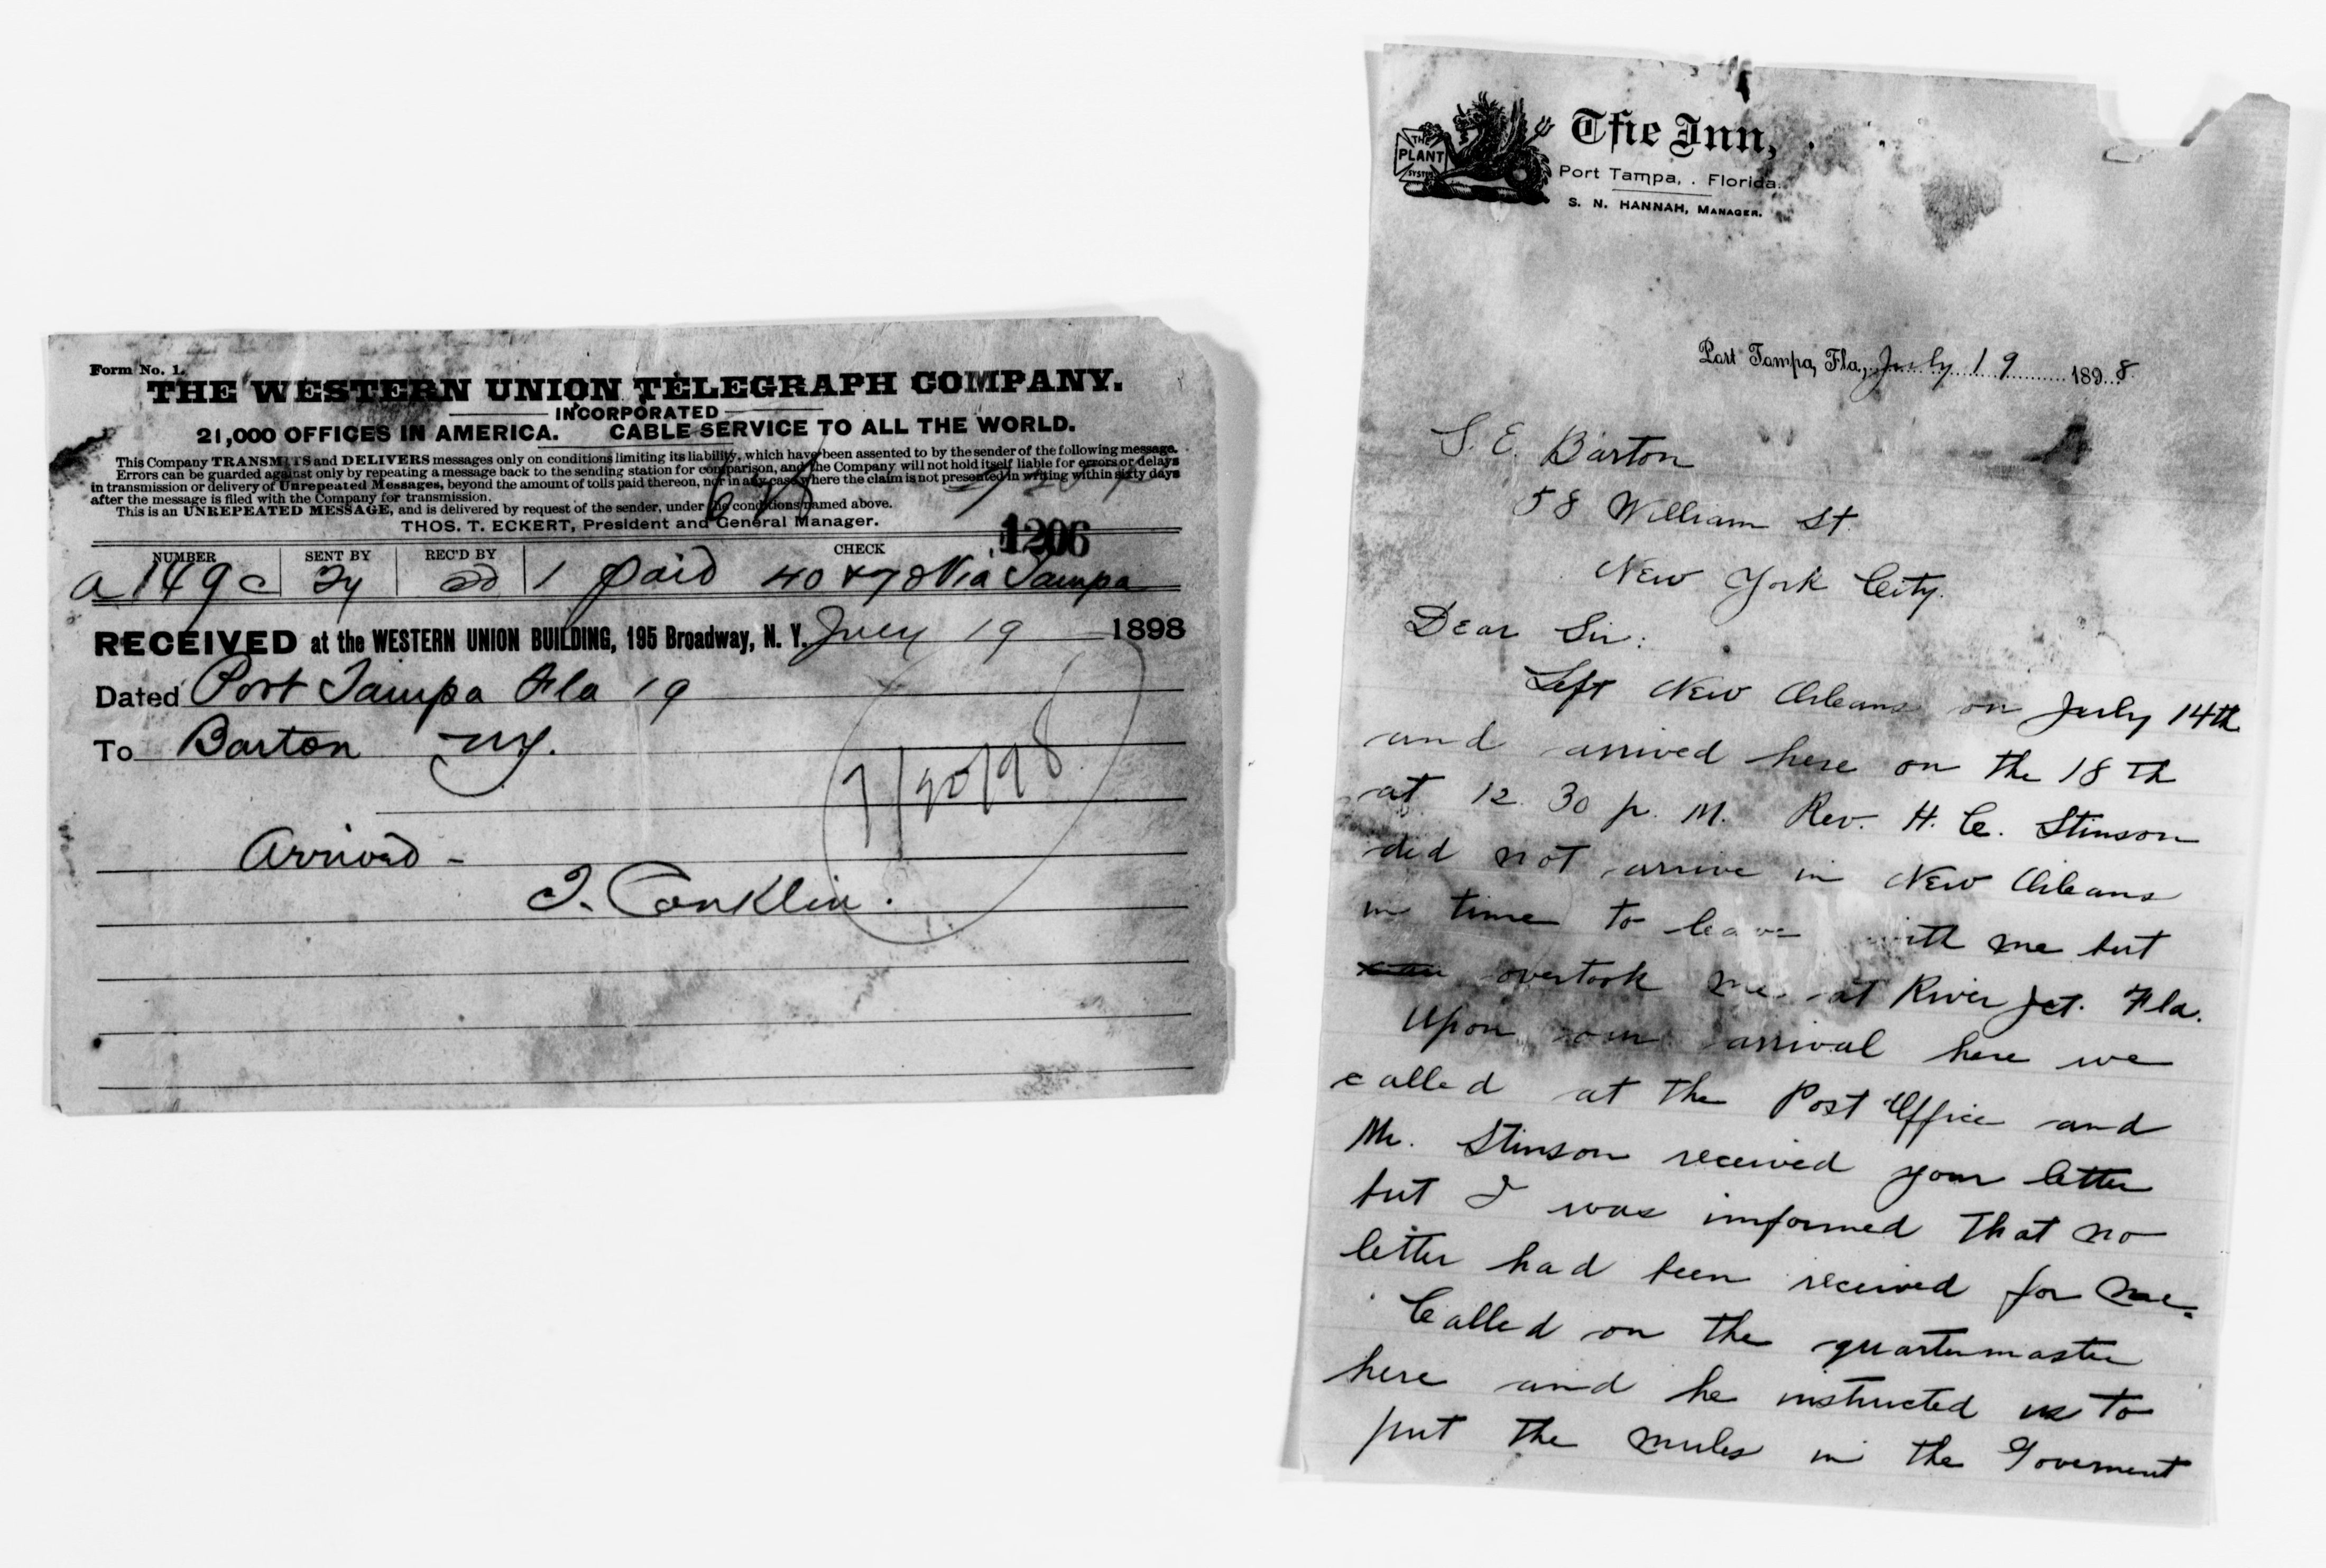 Form No. 1.
THE WESTERN UNION TELEGRAPH COMPANY.
INCORPORATED
21,000 OFFICES IN AMERICA. CABLE SERVICE TO ALL THE WORLD.
This Company TRANSMITS and DELIVERS messages only on conditions limiting its liability, which have been assented to by the sender of the following message.
Errors can be guarded against only by repeating a message back to the sending station for comparison, and the Company will not hold itself liable for errors or delays
in transmission or delivery of Unrepeated Messages, beyond the amount of tolls paid thereon, nor in any case where the claim is not presented in writing within sixty days
after the message is filed with the Company for transmission.
This is an UNREPEATED MESSAGE, and is delivered by request of the sender, under the conditions named above.
THOS. T. ECKERT, President and General Manager.
1206
NUMBER SENT BY REC'D BY CHECK
a 149 c 1 paid Via Tampa
RECEIVED at the WESTERN UNION BUILDING, 195 Broadway, N. Y. July 19 1898
Dated Port Tampa Fla 19
To Barton NY.
7/20/98
Arrived -
J. Conklin.
THE PLANT SYSTEM
The Inn,
Port Tampa, . Florida.
S. N. HANNAH, MANAGER.
Port Tampa, Fla., July 19 1898
S. E. Barton
58 William St.
New York City.
Dear Sir:
Left New Orleans on July 14th
and arrived here on the 18th
at 12.30 p. M. Rev. H. C. Stinson
did not arrive in New Orleans
in time to leave with me but
overtook me at River Jct. Fla.
Upon our arrival here we
called at the Post Office and
Mr. Stinson received your letter
but I was informed that no
letter had been received for me.
Called on the quartermaster
here and he instructed us to
put the mules in the Goverment